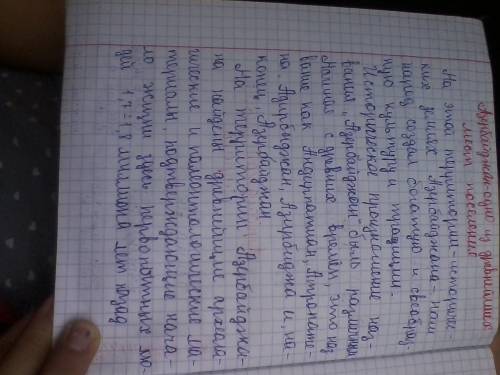 Азербайджан-одно из древнейших
мест поселения
На этой территории-историчес-
ких землях Азербайджана-наш
народ создал богатую и своеобраз-
ную культуру и традиции.
Историческое произношение наз-
вания „Азербайджан" было различным
Начиная с древних времён, это наз
вание как Андирпатиан, Атропате-
на, Азирбиджан, Азирбиджа и, на-
конец, Азербайджан
На территории Азербайджа-
на найдены древнейшие археоло-
гические и палеонтологические ма-
териалы, подтверждающие нача-
ло жизни здесь первобытных лю-
дей 1,7-1,8 миллиона лет назад